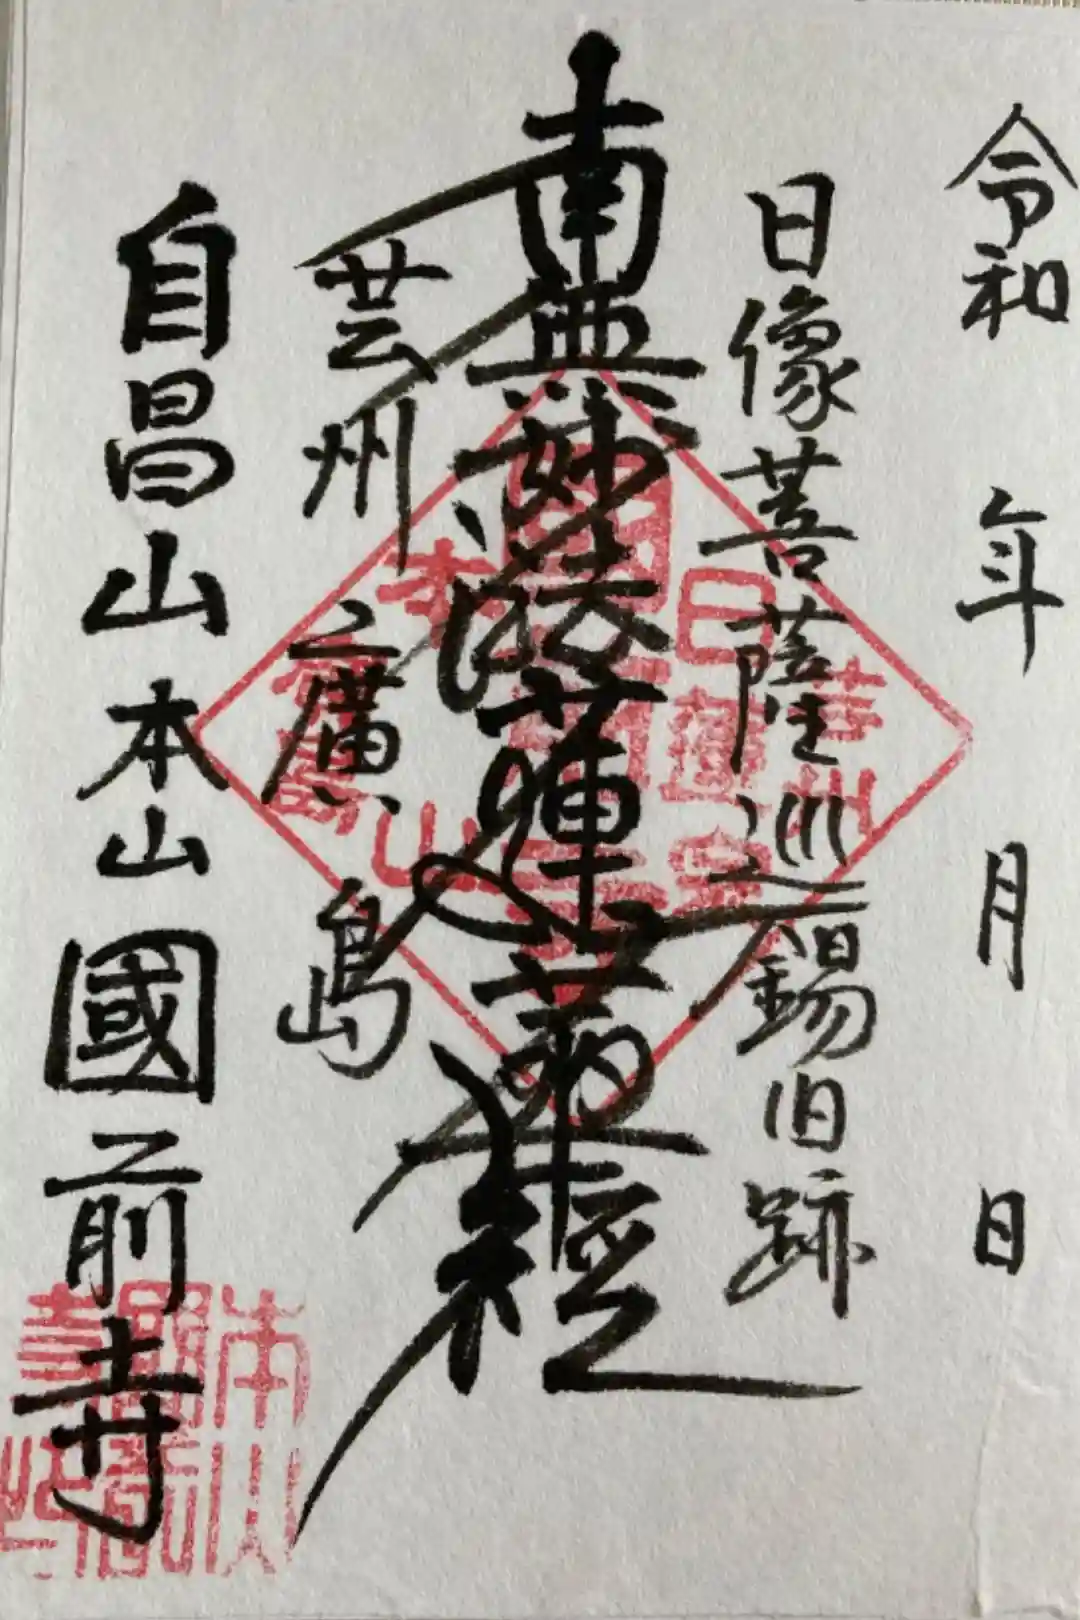 令和 年 月 日
日像菩薩巡錫旧跡
南無妙法蓮華経
芸州之廣島
自昌山本山國前寺